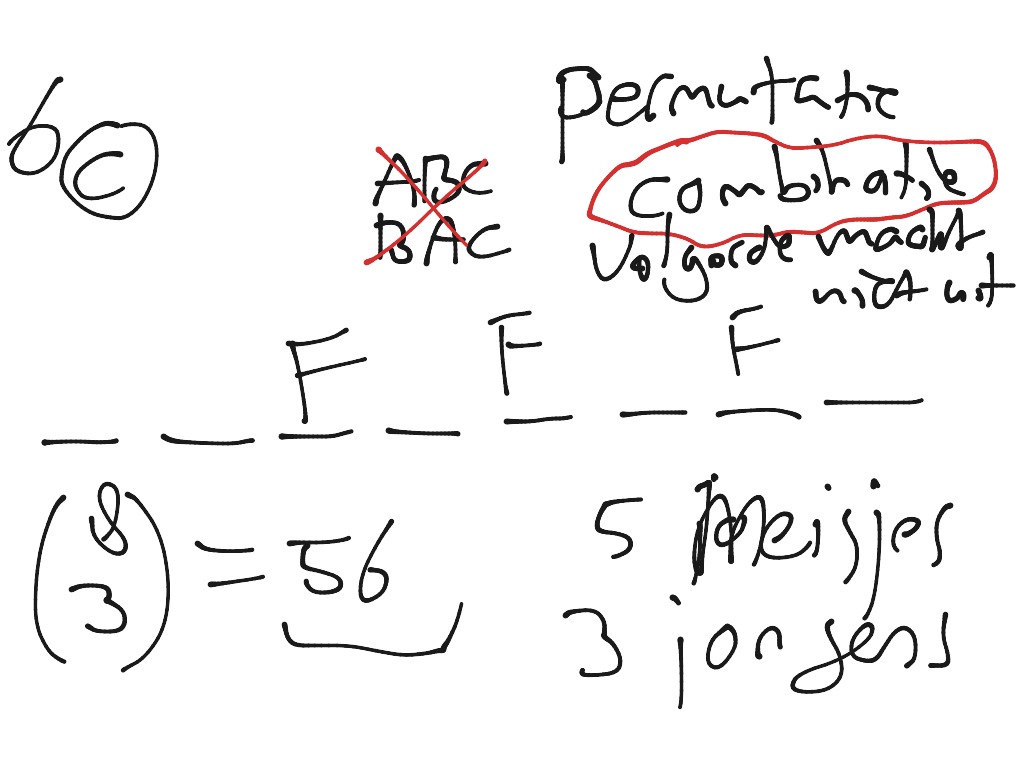 6c
Permutatie
Combinatie
Volgorde macht
niet uit
ABC
BAC
F F F
(8 3) = 56
5 Meisjes
3 jongens